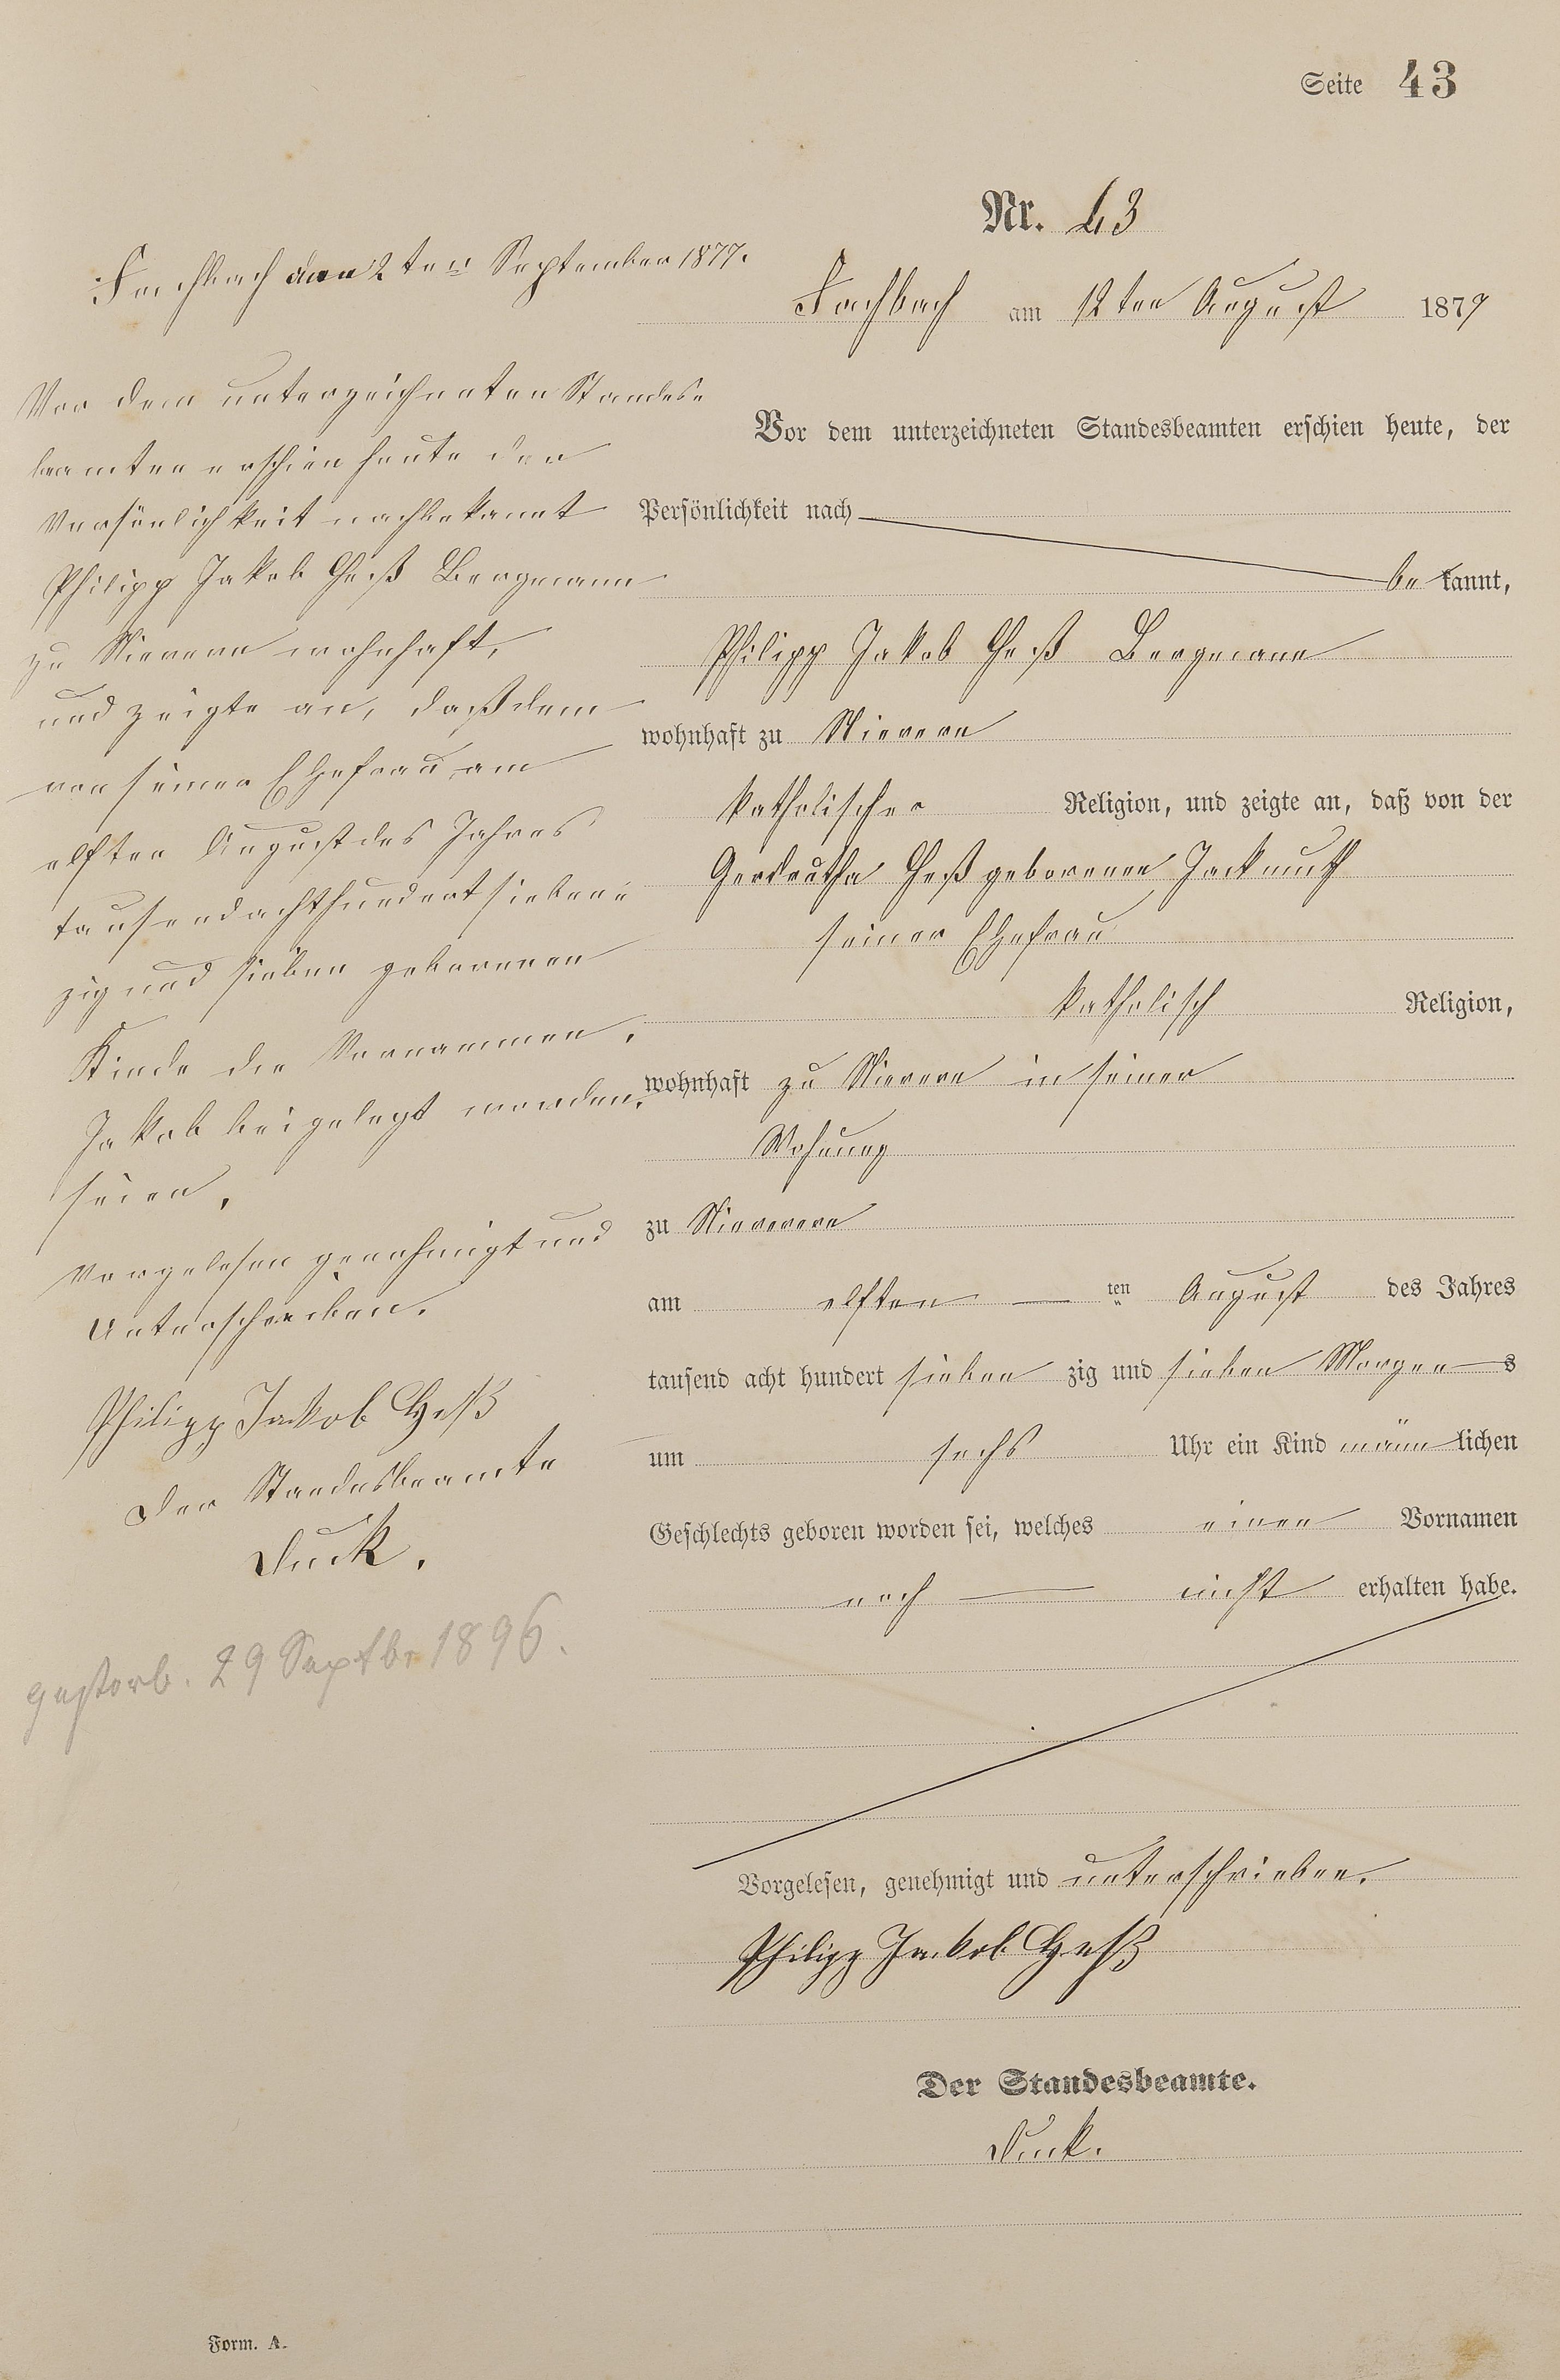 Seite 43
Nr. 43
Fachbach am 12ten August 1877
Vor dem unterzeichneten Standesbeamten erschien heute, der
Persönlichkeit nach
be kannt,
Philipp Jakob Heß Bergmann
wohnhaft zu Nievern
katholischer Religion, und zeigte an, daß von der
Gerdrutha Heß geborenen Jackmuth
seiner Ehefrau
katholisch Religion,
wohnhaft zu Nievern in seiner
Wohnung
zu Nievern
am elften ten August des Jahres
tausend acht hundert sieben zig und sieben Morgens
um sechs Uhr ein Kind männlichen
Geschlechts geboren worden sei, welches einen Vornamen
noch nicht erhalten habe.
Vorgelesen, genehmigt und unterschrieben.
Philipp Jackob Heß
Der Standesbeamte.
Duck.
Fachbach den 2ten September 1877.
Vor dem unterzeichneten Standes-
beamten erschien heute der
Persönlichkeit nach bekannt
Philipp Jakob Heß Bergmann
zu Nievern wohnhaft,
und zeigte an, daß dem
von seiner Ehefrau am
elften August des Jahres
tausend achthundert sieben-
zig und sieben geborenen
Kinde die Vornammen,
Jakob beigelegt worden
seien.
Vorgelesen genehmigt und
Unterschrieben.
Philipp Jackob Heß
Der Standesbeamte
Duck.
gestorb. 29 Septbr 1896.
Form. A.